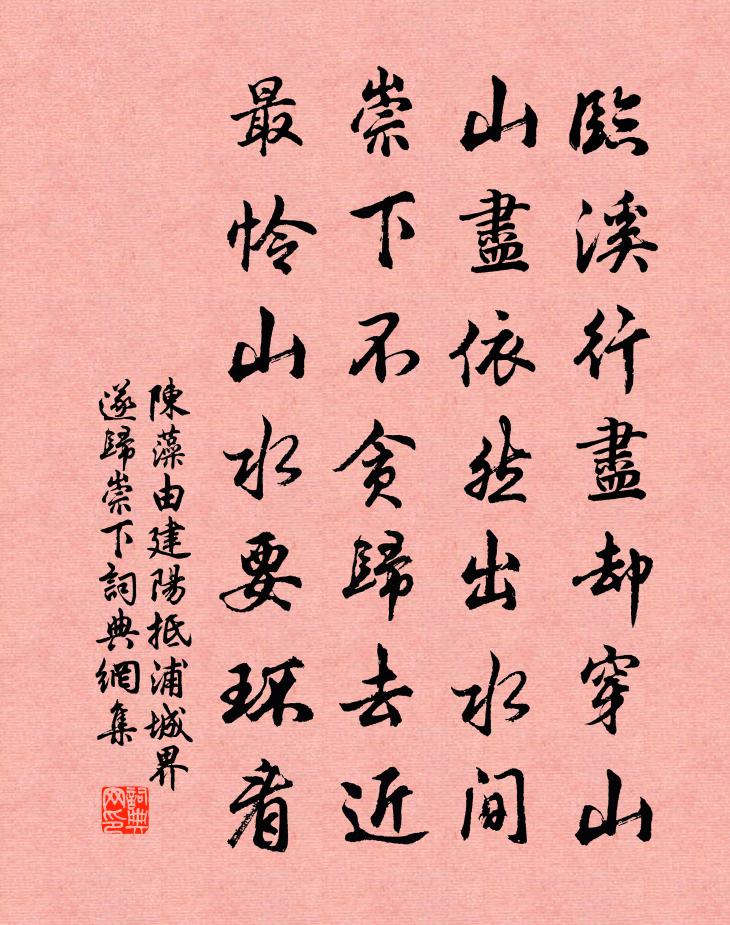 臨溪行盡却穿山
山盡依然出水間
崇下不貪歸去近
最怜山水要环看
陳藻由建陽抵浦城界
遂歸崇下詞典網集
詞典
网印